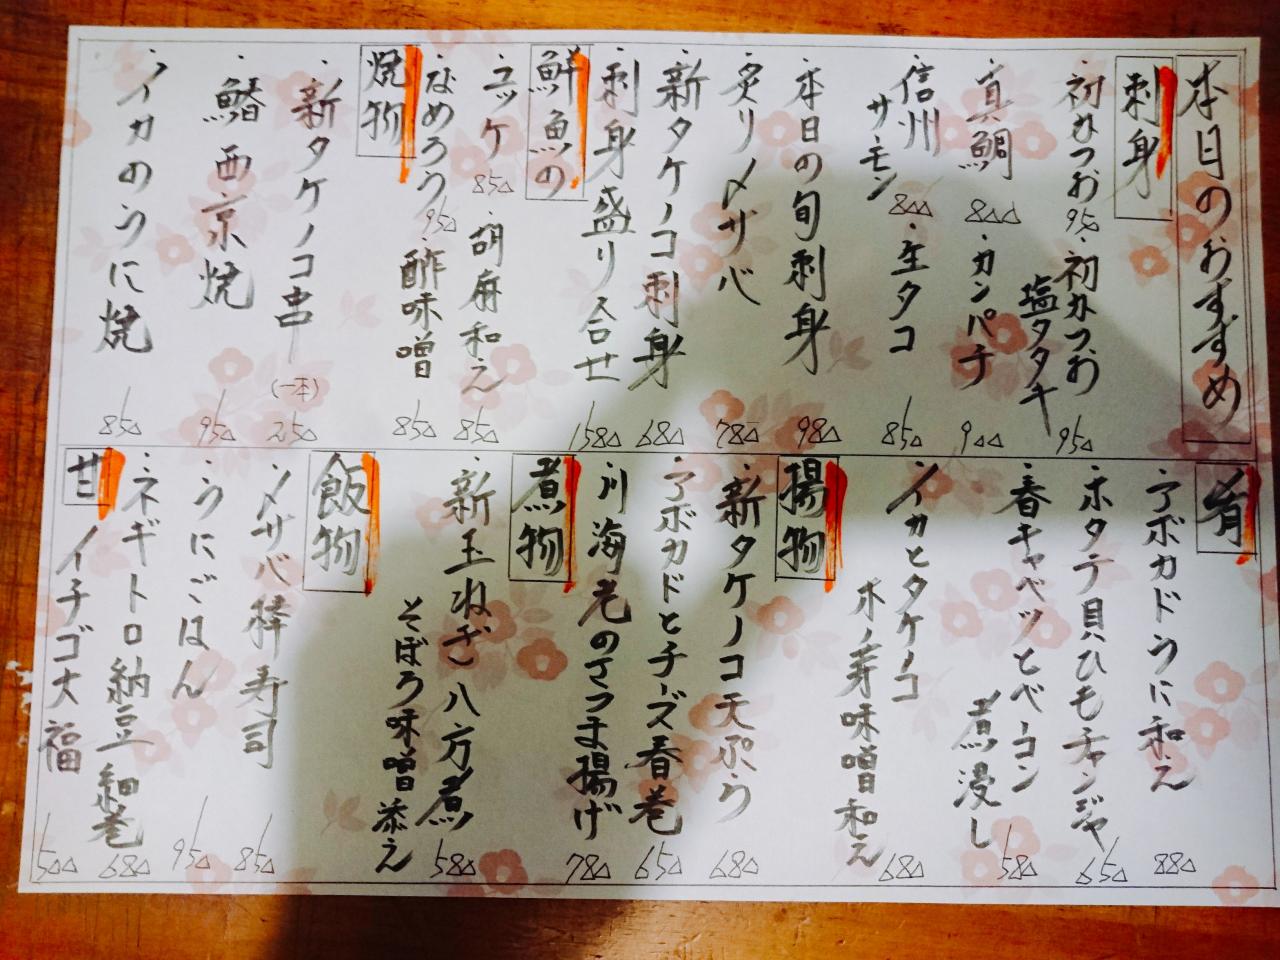 本日のおすすめ
刺身
・初かつお 950
・初かつお
塩タタキ 950
・真鯛 800
・カンパチ 900
・信州
サーモン 800
・生タコ 850
・本日の旬刺身 980
・炙り〆サバ 780
・新タケノコ刺身 680
・刺身盛り合せ 1580
鮮魚の
・ユッケ 850
・胡麻和え 850
・なめろう 950
・酢味噌 850
焼物
・新タケノコ串 (一本) 250
・鰆西京焼 950
・イカのうに焼 850
肴
・アボカドうに和え 880
・ホタテ貝ひもチャンジャ 650
・春キャベツとベーコン
煮浸し 580
・イカとタケノコ
木ノ芽味噌和え 680
揚物
・新タケノコ天ぷら 680
・アボカドとチーズ春巻 650
・川海老のさつま揚げ 780
煮物
・新玉ねぎ八方煮
そぼろ味噌添え 580
飯物
・〆サバ棒寿司 850
・うにごはん 950
・ネギトロ納豆細巻 680
甘
・イチゴ大福 500